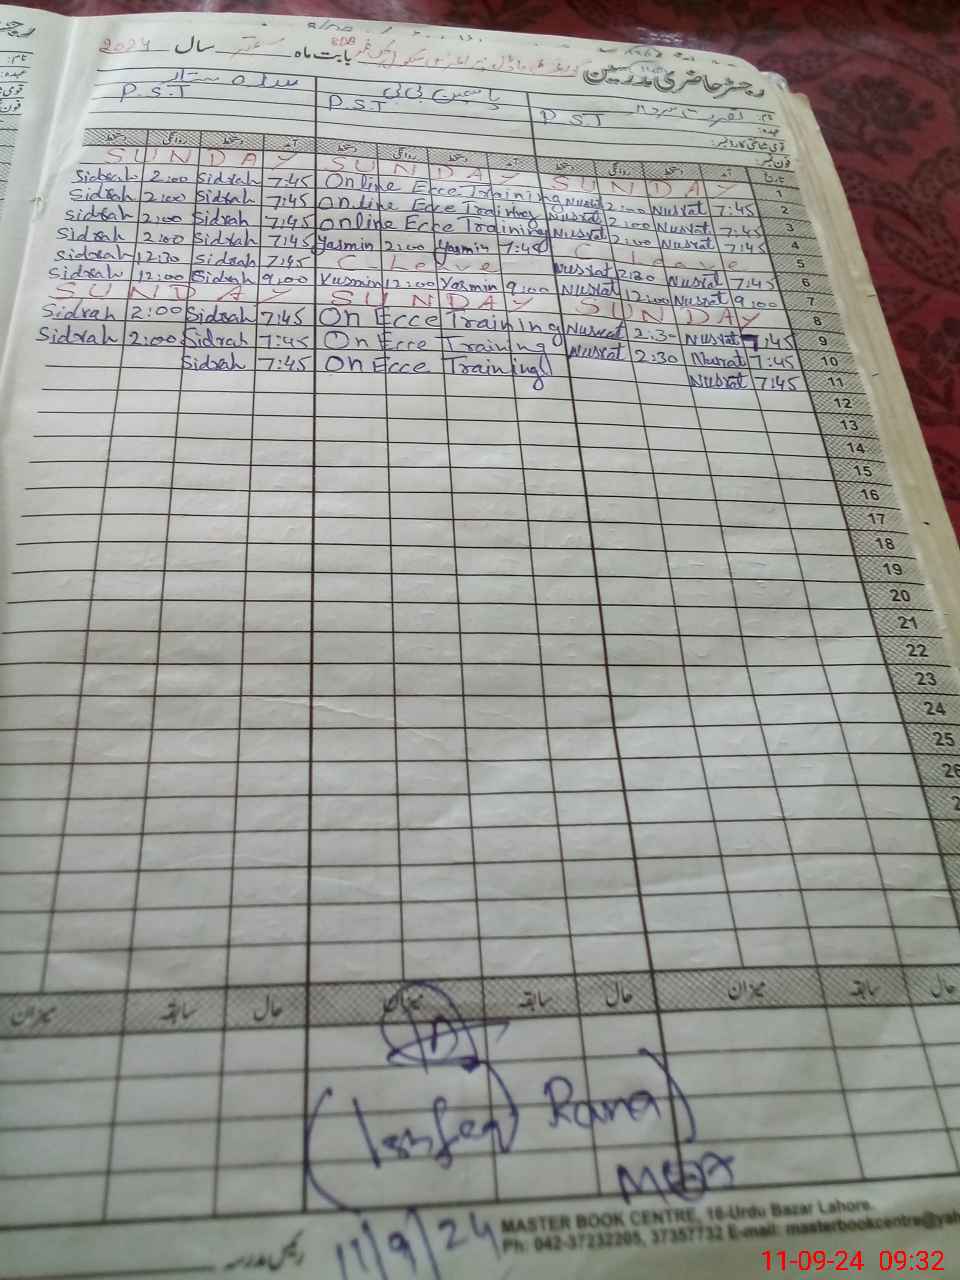 رجسٹر حاضری مدرسین
بابت ماہ ستمبر سال 2024
نام:
عہدہ:
قومی شناختی کارڈ نمبر:
فون نمبر:
P.S.T یاسمین بی بی P.S.T P.S.T
دستخط روانگی دستخط آمد دستخط روانگی دستخط آمد دستخط روانگی دستخط آمد
SUNDAY SUNDAY SUNDAY 1
Sidrah 2:00 Sidrah 7:45 Online Ecce Training Nusrat 2:00 Nusrat 7:45 2
Sidrah 2:00 Sidrah 7:45 Online Ecce Training Nusrat 2:00 Nusrat 7:45 3
Sidrah 2:00 Sidrah 7:45 Online Ecce Training Nusrat 2:00 Nusrat 7:45 4
Sidrah 2:00 Sidrah 7:45 Yasmin 2:00 Yasmin 7:45 C Leave 5
Sidrah 12:30 Sidrah 7:45 C Leave Nusrat 2:30 Nusrat 7:45 6
Sidrah 12:00 Sidrah 9:00 Yasmin 12:00 Yasmin 9:00 Nusrat 12:00 Nusrat 9:00 7
SUNDAY SUNDAY SUNDAY 8
Sidrah 2:00 Sidrah 7:45 On Ecce Training Nusrat 2:30 Nusrat 7:45 9
Sidrah 2:00 Sidrah 7:45 On Ecce Training Nusrat 2:30 Nusrat 7:45 10
Sidrah 7:45 On Ecce Training Nusrat 7:45 11
12
13
14
15
16
17
18
19
20
21
22
23
24
25
26
میزان سابقہ حال میزان سابقہ حال میزان سابقہ حال
Rana
11/9/24
رئیس مدرسہ
MASTER BOOK CENTRE, 16-Urdu Bazar Lahore.
Ph: 042-37232205, 37357732 E-mail: masterbookcentre@yah
11-09-24 09:32